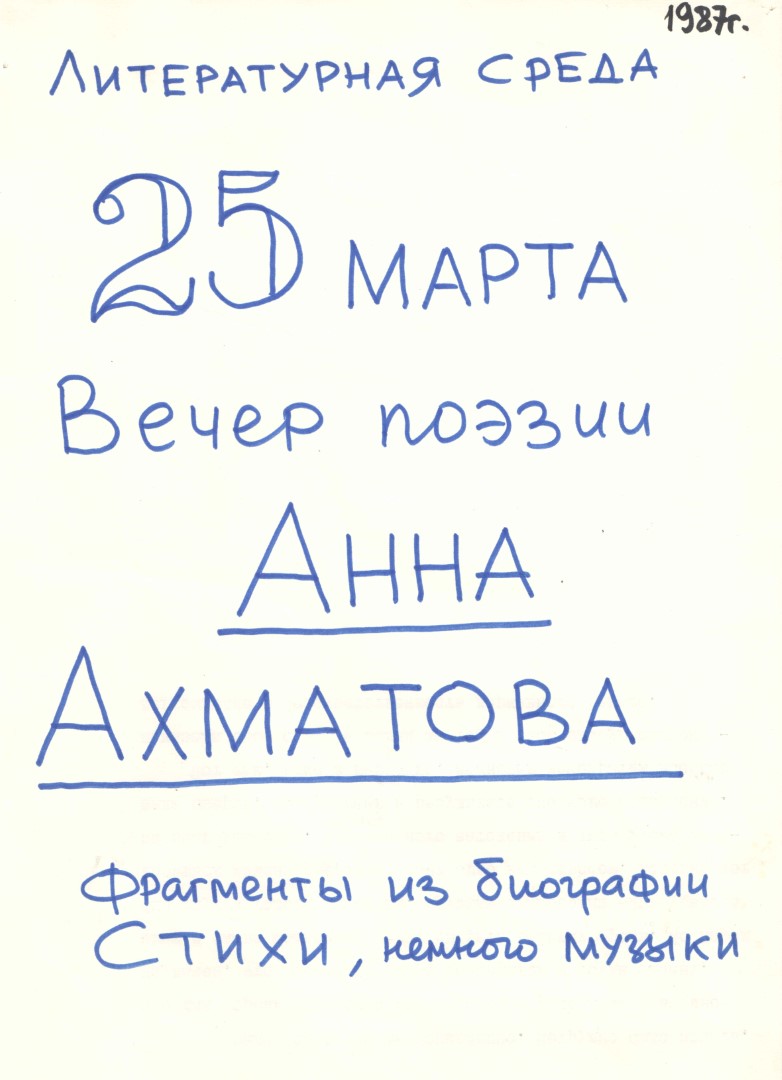 1987г.
Литературная среда
25 марта
Вечер поэзии
Анна
Ахматова
Фрагменты из биографии
Стихи, немного музыки